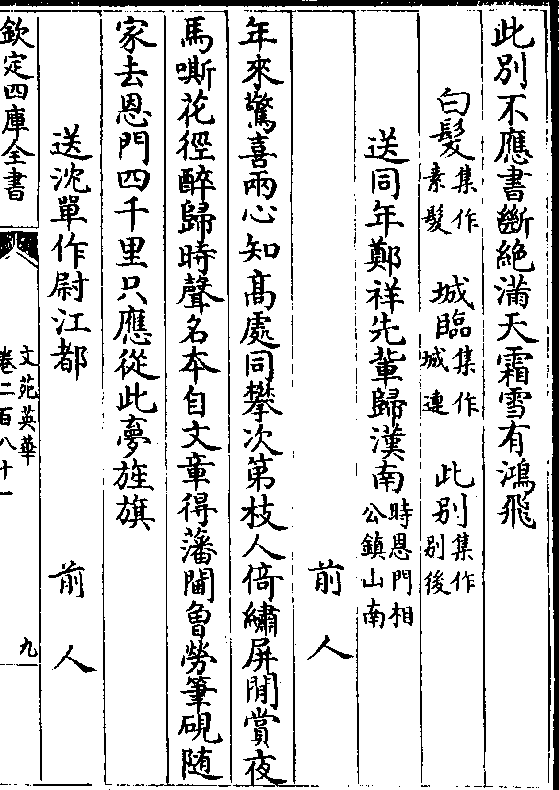 此別不應書斷絶滿天霜雪有鴻飛
白髮集作素髮　城臨集作城連　此別集作別後
送同年鄭祥先輩歸漢南時恩門相公鎮山南
前人
年來驚喜兩心知高處同攀次第枝人倚繡屏閒賞夜
馬嘶花徑醉歸時聲名本自文章得藩閫曾勞筆硯随
家去恩門四千里只應從此夢旌旗
送沈單作尉江都　前人
欽定四庫全書
文苑英華
卷二百八十一
九